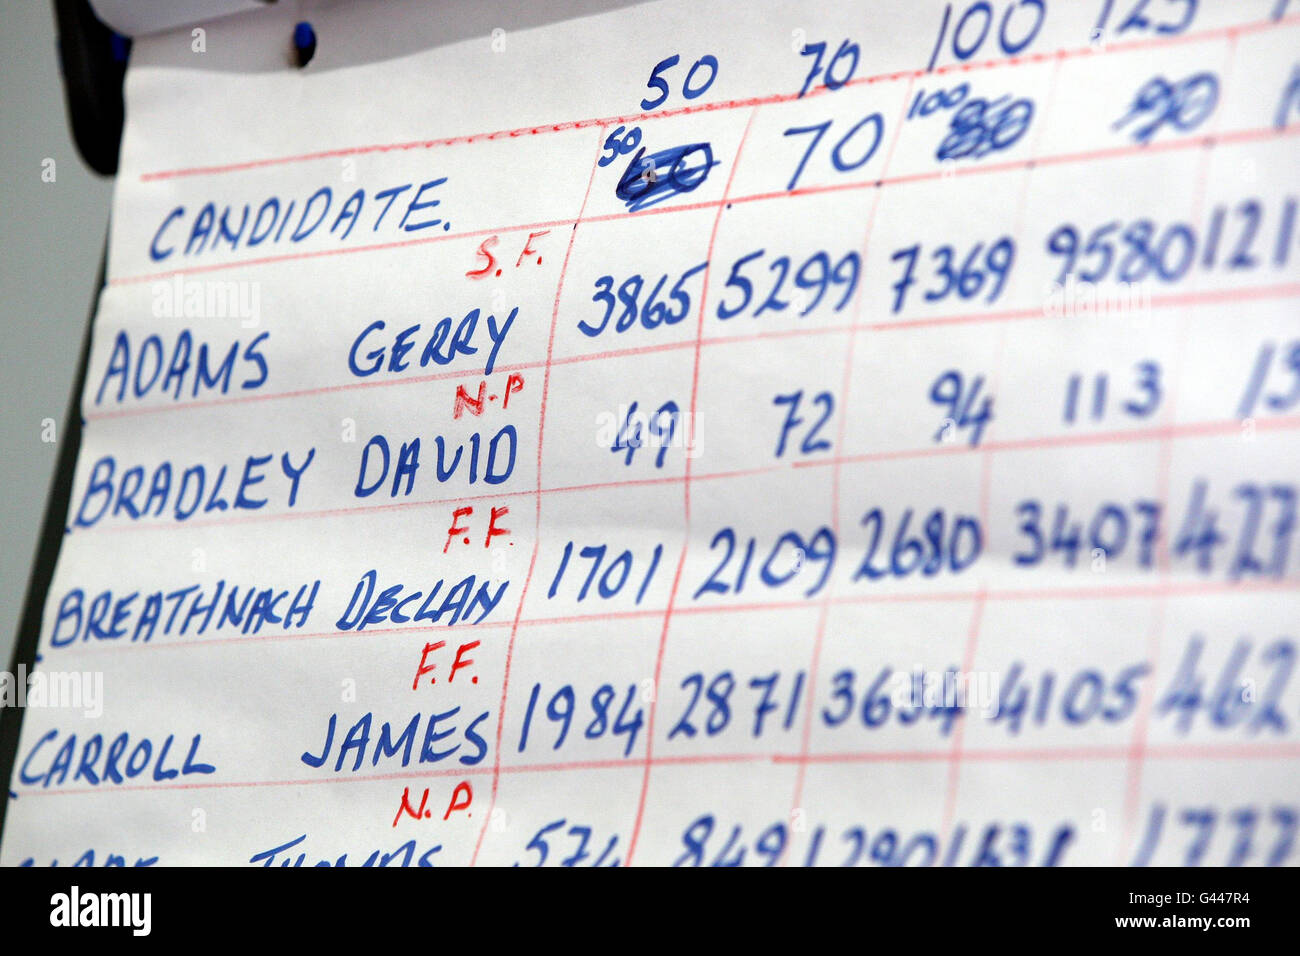 50 70 100 125
50 70 100
CANDIDATE.
S.F.
ADAMS GERRY 3865 5299 7369 9580 121
N.P
BRADLEY DAVID 49 72 94 113 13
F.F.
BREATHNACH DECLAN 1701 2109 2680 3407 427
F.F.
CARROLL JAMES 1984 2871 3634 4105 462
N.P.
THOMAS 574 849 1290 1631 1777
alamy
Image ID: G447R4
www.alamy.com